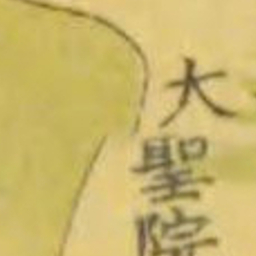 大聖院